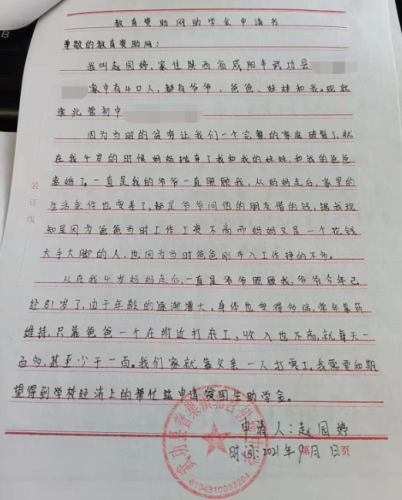 教育资助网助学金申请书
尊敬的教育资助网:
我叫赵园婷,家住陕西省咸阳市武功县
家中有4口人,都有爷爷,爸爸,妹妹和我。现就
读北营初中
因为当时的贫穷让我们一个完整的家庭破裂了,就
在我4岁的时候妈妈抛弃了我和我的妹妹,和我的爸爸
离婚了。一直是我的爷爷一直照顾我,从妈妈走后,家里的
生活条件也变差了,都是爷爷问他的朋友借的钱,据我现
知是因为爸爸当时工作工资不高而妈妈又是一个花钱
大手大脚的人,也因为当时爸爸刚步入工作挣的不多。
从在我4岁妈妈走后,一直是爷爷照顾我,爷爷今年已
经81岁了,由于年龄的逐渐增大,身体也变得多病,常年靠药
维持,只靠爸爸一个在附近打零工,收入也不高,就每天一
百多,甚至少于一百。我们家就靠父亲一人打零工,我需要和期
望得到学校经济上的帮忙故申请贫困生助学金。
申请人:赵园婷
时间:2021年9月1日
装订线
6104310033204